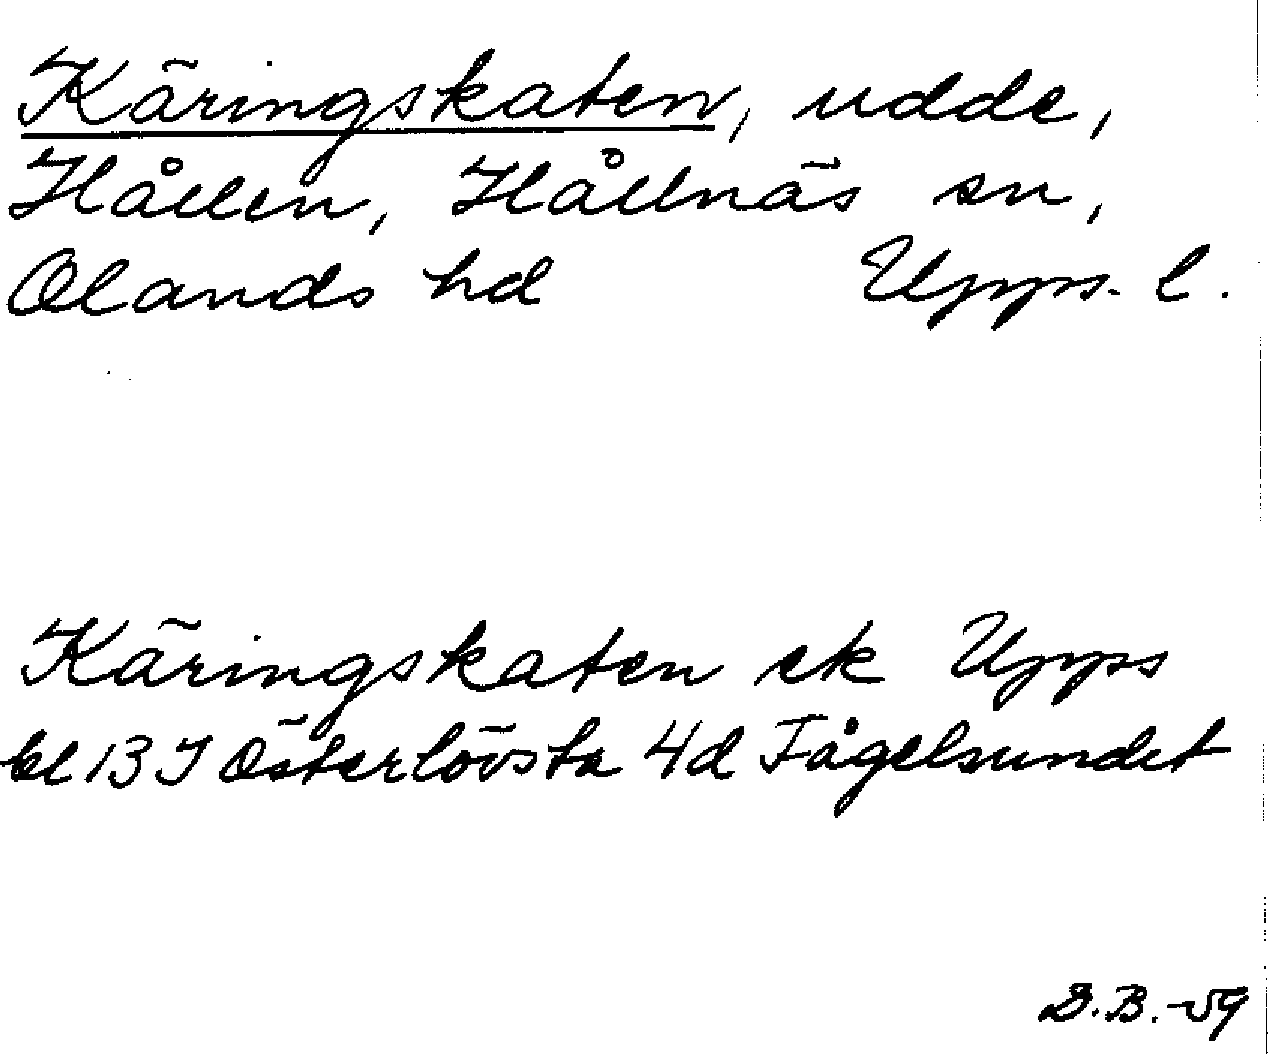 Käringskaten, udde,
Hållen, Hållnäs sn,
Olands hd Upps. l.
Käringskaten ek Upps
bl 13 I Österlövsta 4d Fågelsundet
D.B. -59